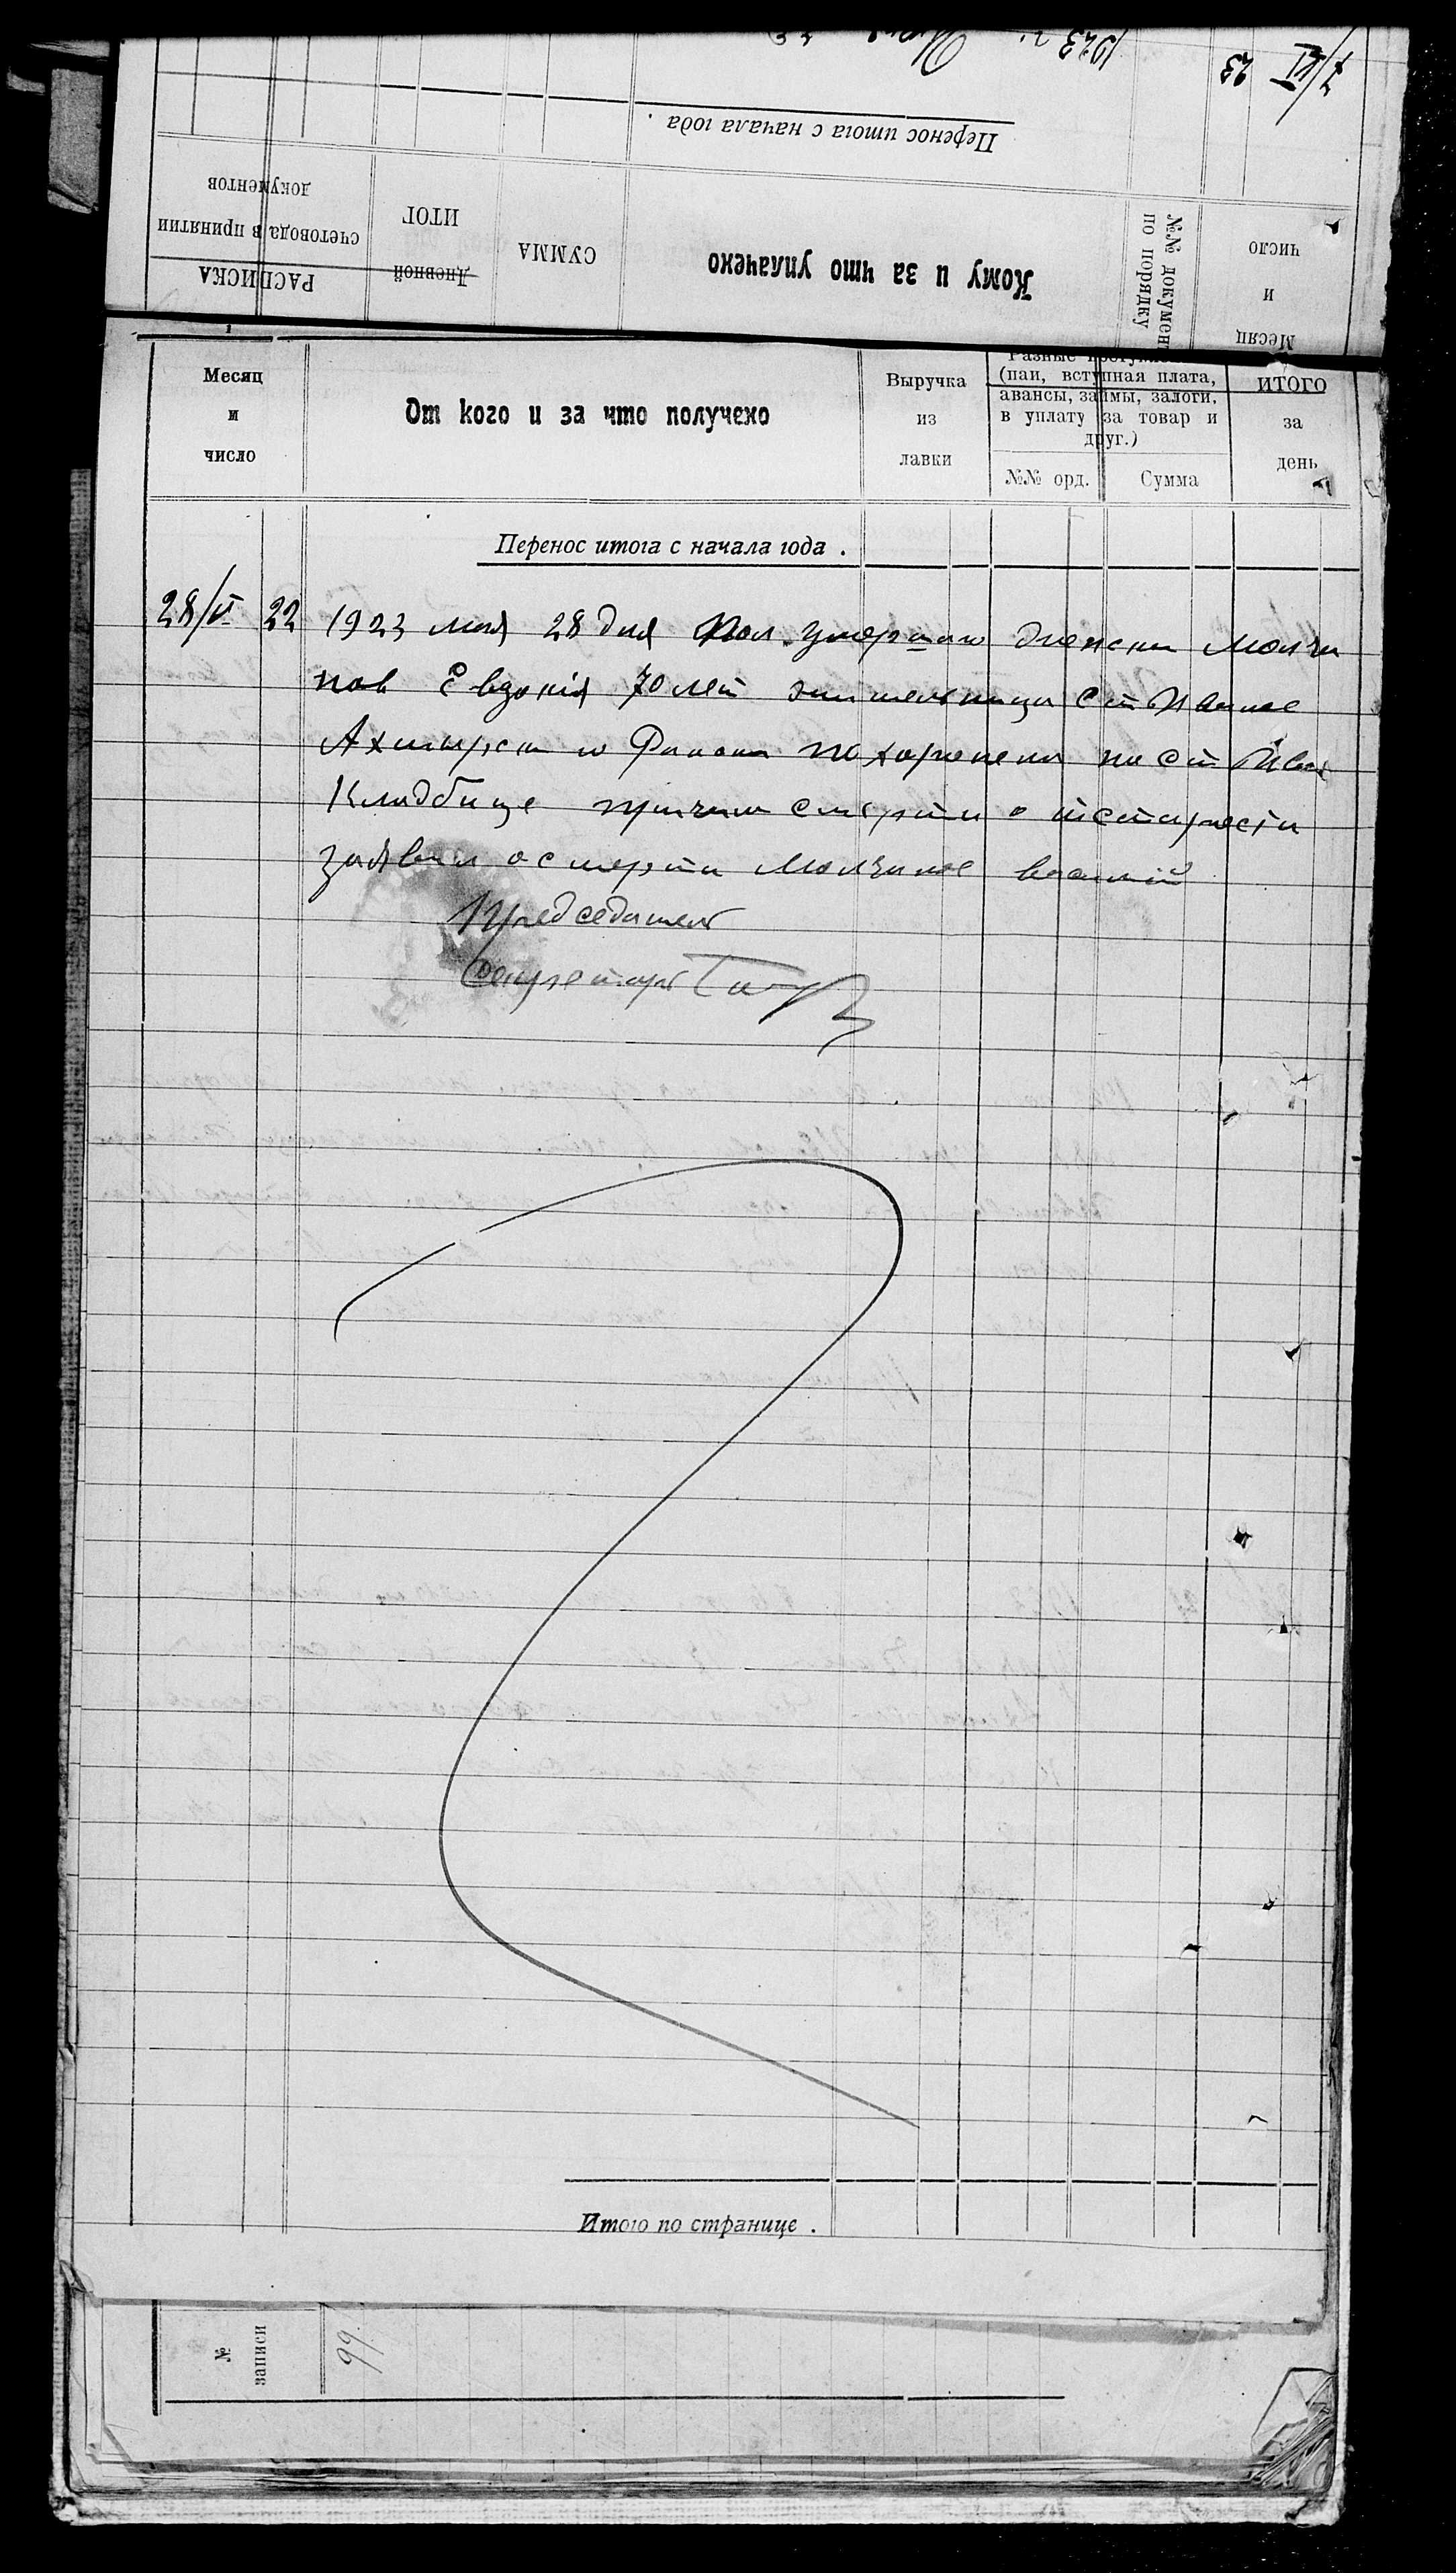 1923 г.
7/VI 23
Перенос итога с начала года .
РАСПИСКА
счетовода в принятии
документов
Дневной
ИТОГ
СУММА
Кому и за что уплачено
№№ документ
по порядку
Месяц
и
число
Месяц
и
число
От кого и за что получено
Выручка
из
лавки
Разные
(паи, вступная плата,
авансы, займы, залоги,
в уплату за товар и
друг.)
№№ орд.
Сумма
ИТОГО
за
день
Перенос итога с начала года .
28/V 22 1923 мая 28 дня Пол умершаго женски Молча
нов Евдокія 70 лет жительница Ст
Ахтырск похоронена на ст
Кладбище причина смерти отстарости
заявил о смерти Молчанов
Председатель
Секретарь
Итого по странице .
№
записи
99